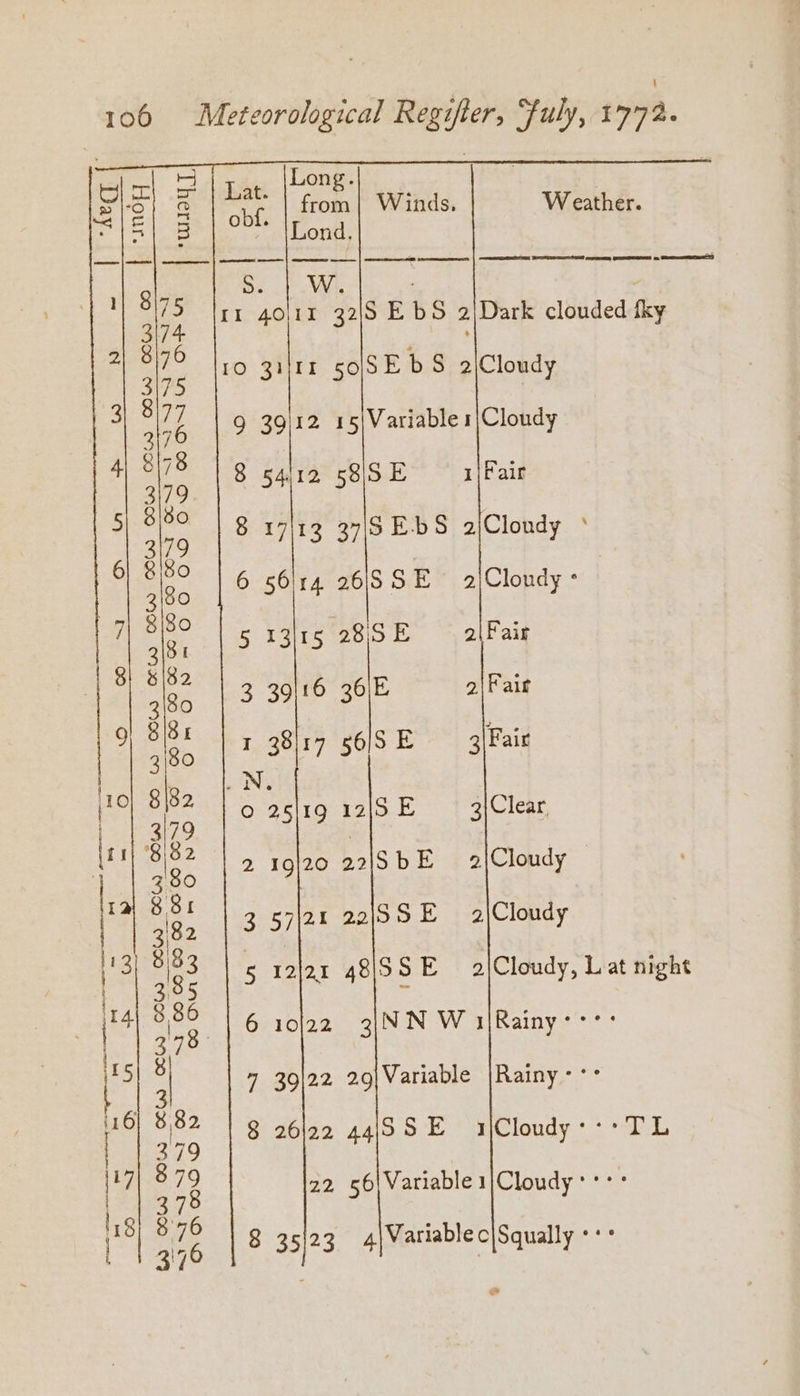 106 Meteorological Regiſter, July, 1772.
Day. | Hour. | Therm. | Lat. obſ. | Long. from Lond. | Winds. | Weather.
S. | W.
1 | 8 | 75 | 11 40 | 11 32 | S E b S 2 | Dark clouded ſky
3 | 74
2 | 8 | 76 | 10 31 | 11 50 | S E b S 2 | Cloudy
3 | 75
3 | 8 | 77 | 9 39 | 12 15 | Variable 1 | Cloudy
3 | 76
4 | 8 | 78 | 8 54 | 12 58 | S E 1 | Fair
3 | 79
5 | 8 | 80 | 8 17 | 13 37 | S E b S 2 | Cloudy ·
3 | 79
6 | 8 | 80 | 6 56 | 14 26 | S S E 2 | Cloudy ·
3 | 80
7 | 8 | 80 | 5 13 | 15 28 | S E 2 | Fair
3 | 81
8 | 8 | 82 | 3 39 | 16 36 | E 2 | Fair
3 | 80
9 | 8 | 81 | 1 38 | 17 56 | S E 3 | Fair
3 | 80
N.
10 | 8 | 82 | 0 25 | 19 12 | S E 3 | Clear
3 | 79
11 | 8 | 82 | 2 19 | 20 22 | S b E 2 | Cloudy
3 | 80
12 | 8 | 81 | 3 57 | 21 22 | S S E 2 | Cloudy
3 | 82
13 | 8 | 83 | 5 12 | 21 48 | S S E 2 | Cloudy, L at night
3 | 85
14 | 8 | 86 | 6 10 | 22 3 | N N W 1 | Rainy · · · ·
3 | 78
15 | 8 | | 7 39 | 22 29 | Variable | Rainy · · ·
3
16 | 8 | 82 | 8 26 | 22 44 | S S E 1 | Cloudy · · · T L
3 | 79
17 | 8 | 79 | | 22 56 | Variable 1 | Cloudy · · · ·
3 | 78
18 | 8 | 76 | 8 35 | 23 4 | Variable 0 | Squally · · ·
3 | 76